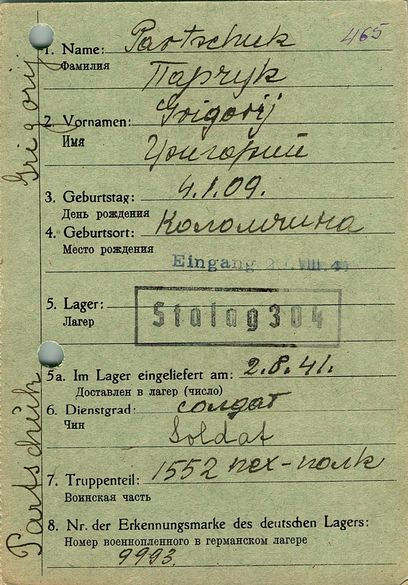 465
1. Name: Partschuk
Фамилия Парчук
2. Vornamen: Grigorij
Имя Григорий
3. Geburtstag: 4.1.09.
День рождения
4. Geburtsort: Коломчина
Место рождения
Eingang VIII
5. Lager: Stalag 304
Лагерь
5a. Im Lager eingeliefert am: 2.8.41.
Доставлен в лагерь (число)
6. Dienstgrad: солдат
Чин Soldat
7. Truppenteil: 1552 пех-полк
Воинская часть
8. Nr. der Erkennungsmarke des deutschen Lagers:
Номер военнопленного в германском лагере
9993
Partschuk Grigorij